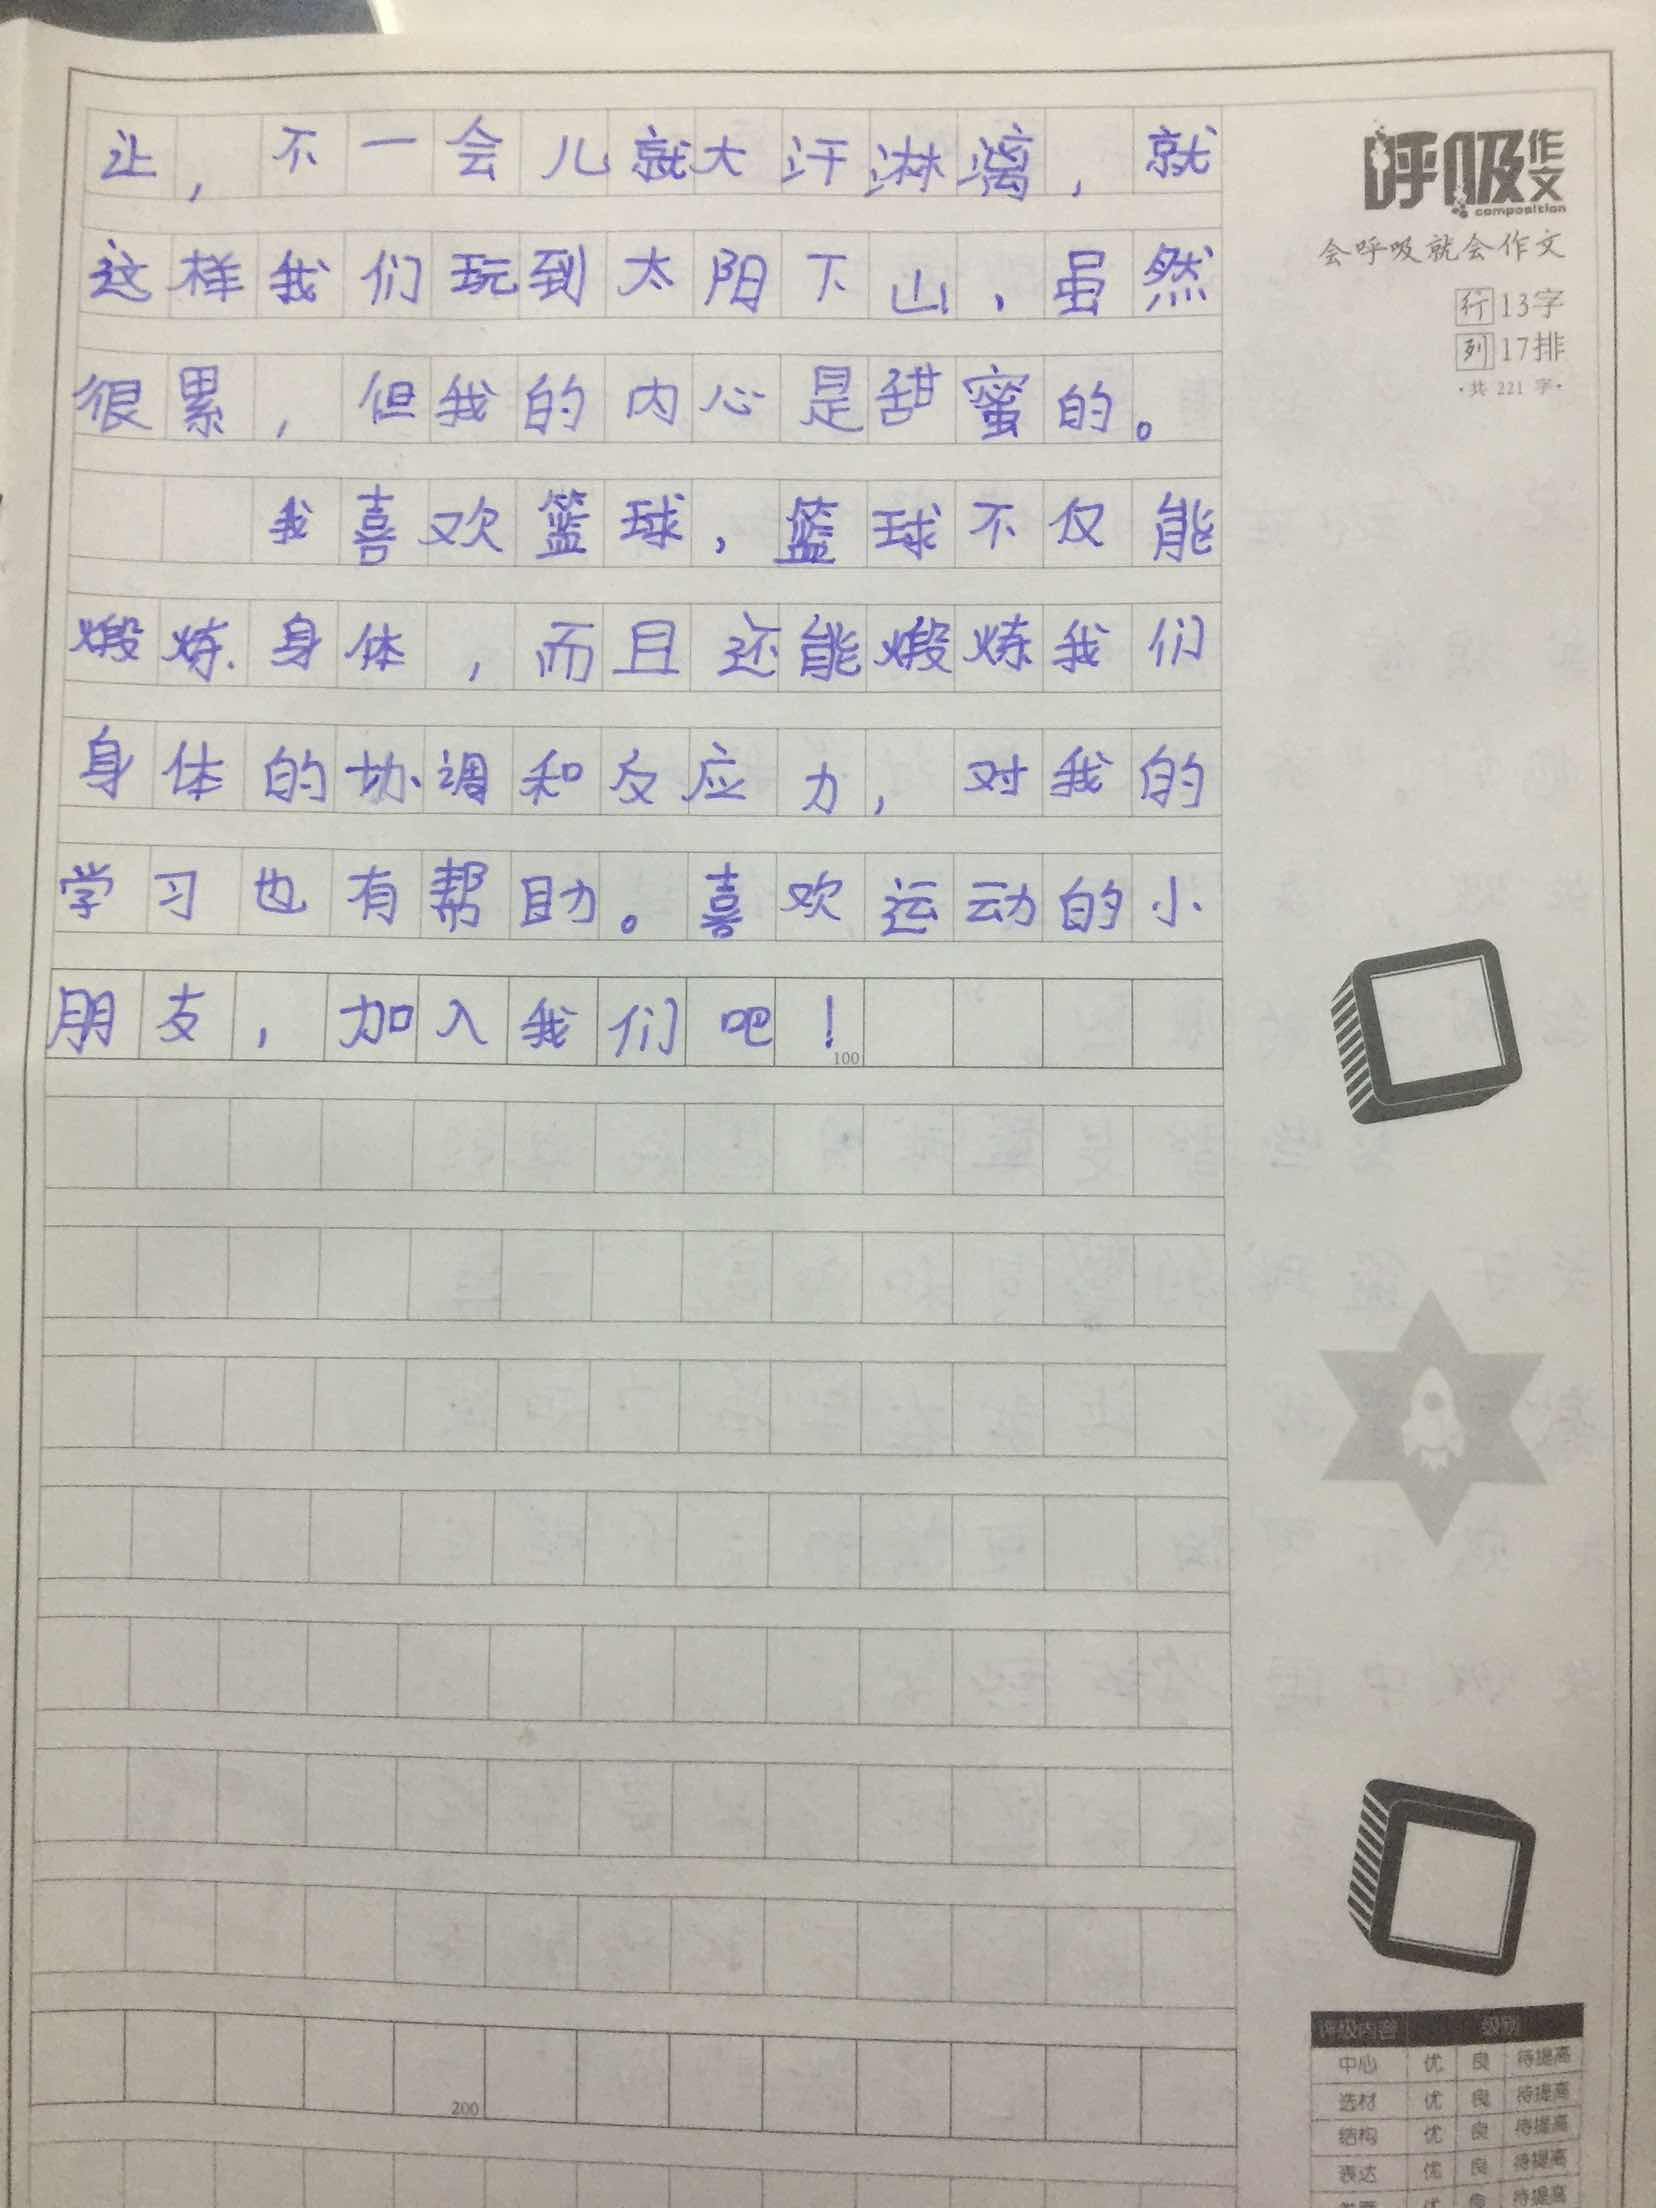 让，不一会儿就大汗淋漓，就
这样我们玩到太阳下山，虽然
很累，但我的内心是甜蜜的。
我喜欢篮球，篮球不仅能
煅炼身体，而且还能煅炼我们
身体的协调和反应力，对我的
学习也有帮助。喜欢运动的小
朋友，加入我们吧！
100
200
呼吸作文
composition
会呼吸就会作文
行 13字
列 17排
·共 221 字·
评级内容 级别
中心 优 良 待提高
选材 优 良 待提高
结构 优 良 待提高
表达 优 良 待提高
优 良 待提高